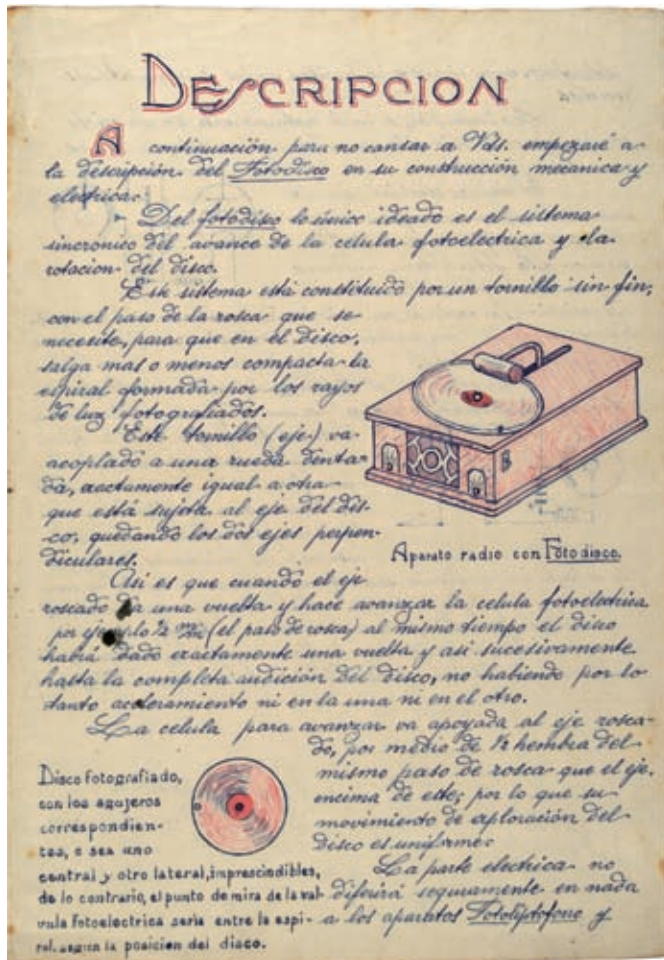 DESCRIPCION
A continuación para no cansar a Vds. empezaré a
la descripción del Fotodisco en su construcción mecanica y
electrica.
Del fotodisco lo único ideado es el sistema
sincronico del avance de la celula fotoelectrica y la
rotacion del disco.
Este sistema está constituido por un tornillo sin fin,
con el paso de la rosca que se
necesite, para que en el disco,
salga mas o menos compacta la
espiral formada por los rayos
de luz fotografiados.
Este tornillo (eje) va
acoplado a una rueda denta-
da, exactamente igual a otra
que está sujeta al eje del dis-
co, quedando los dos ejes perpen-
diculares.
Aparato radio con Fotodisco.
Asi es que cuando el eje
roscado da una vuelta y hace avanzar la celula fotoelectrica
por ejemplo ½ m/m (el paso de rosca) al mismo tiempo el disco
habrá dado exactamente una vuelta y asi sucesivamente
hasta la completa audición del disco, no habiendo por lo
tanto aceleramiento ni en la una ni en el otro.
La celula para avanzar va apoyada al eje rosca-
do, por medio de ½ hembra del
mismo paso de rosca que el eje,
encima de este; por lo que su
movimiento de exploración del
disco es uniforme.
La parte electrica no
diferirá seguramente en nada
a los aparatos Fotoliptofono y
Disco fotografiado,
con los agujeros
correspondien-
tes, o sea uno
central y otro lateral, imprescindibles,
de lo contrario, el punto de mira de la val-
vula fotoelectrica seria entre la espi-
ral, segun la posicion del disco.